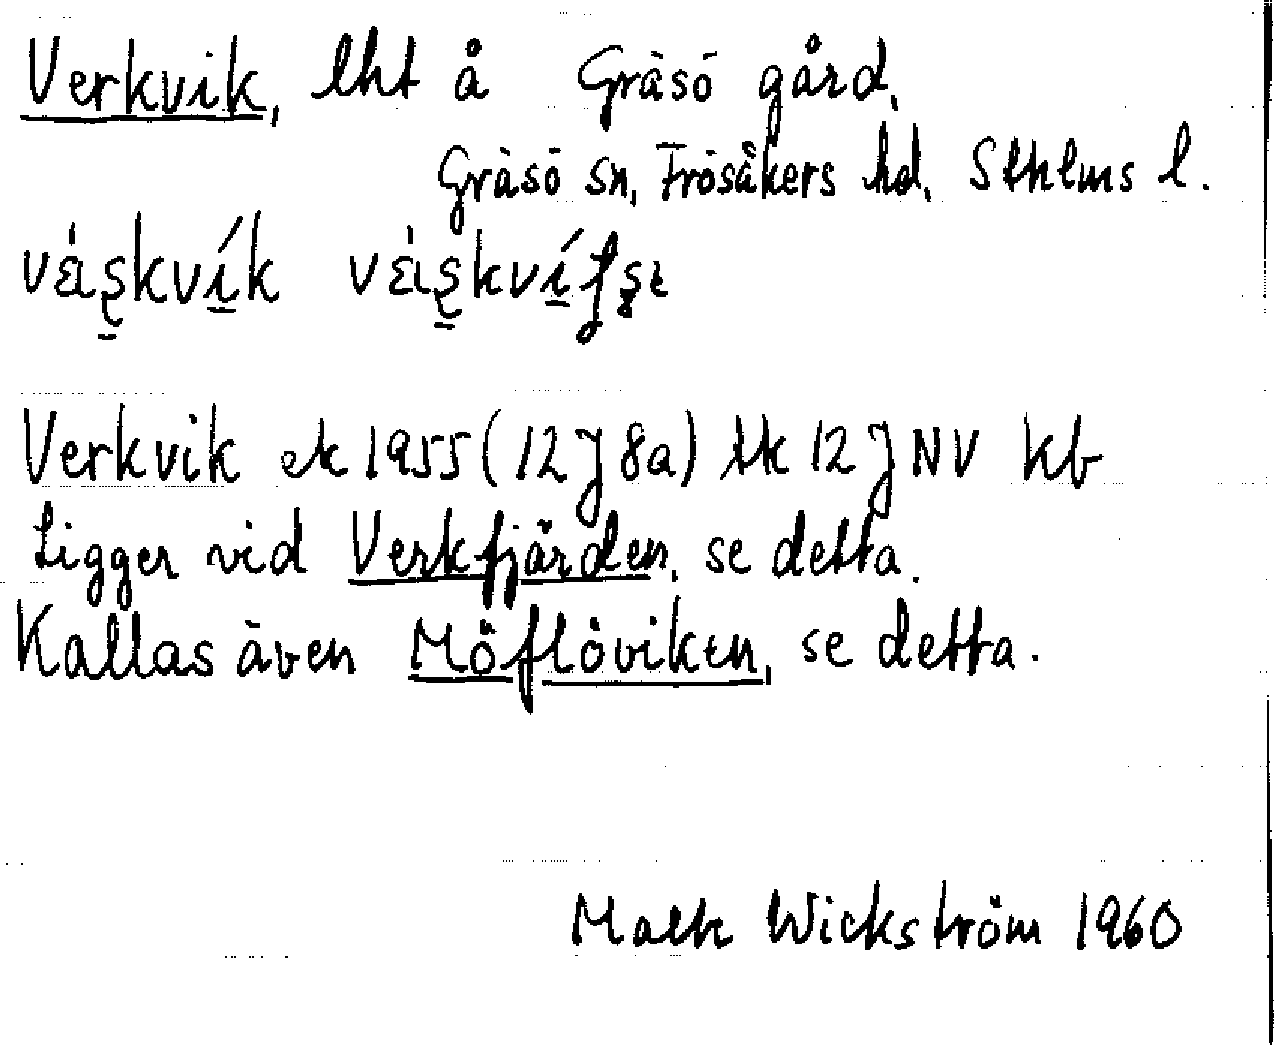 Verkvik, lht å Gräsö gård,
Gräsö sn, Frösåkers hd, Sthlms l.
Verkvik ek 1955 (12 J 8a) tk 12 J NV kb
Ligger vid Verkfjärden, se detta.
Kallas även Möflöviken, se detta.
Wickström 1960